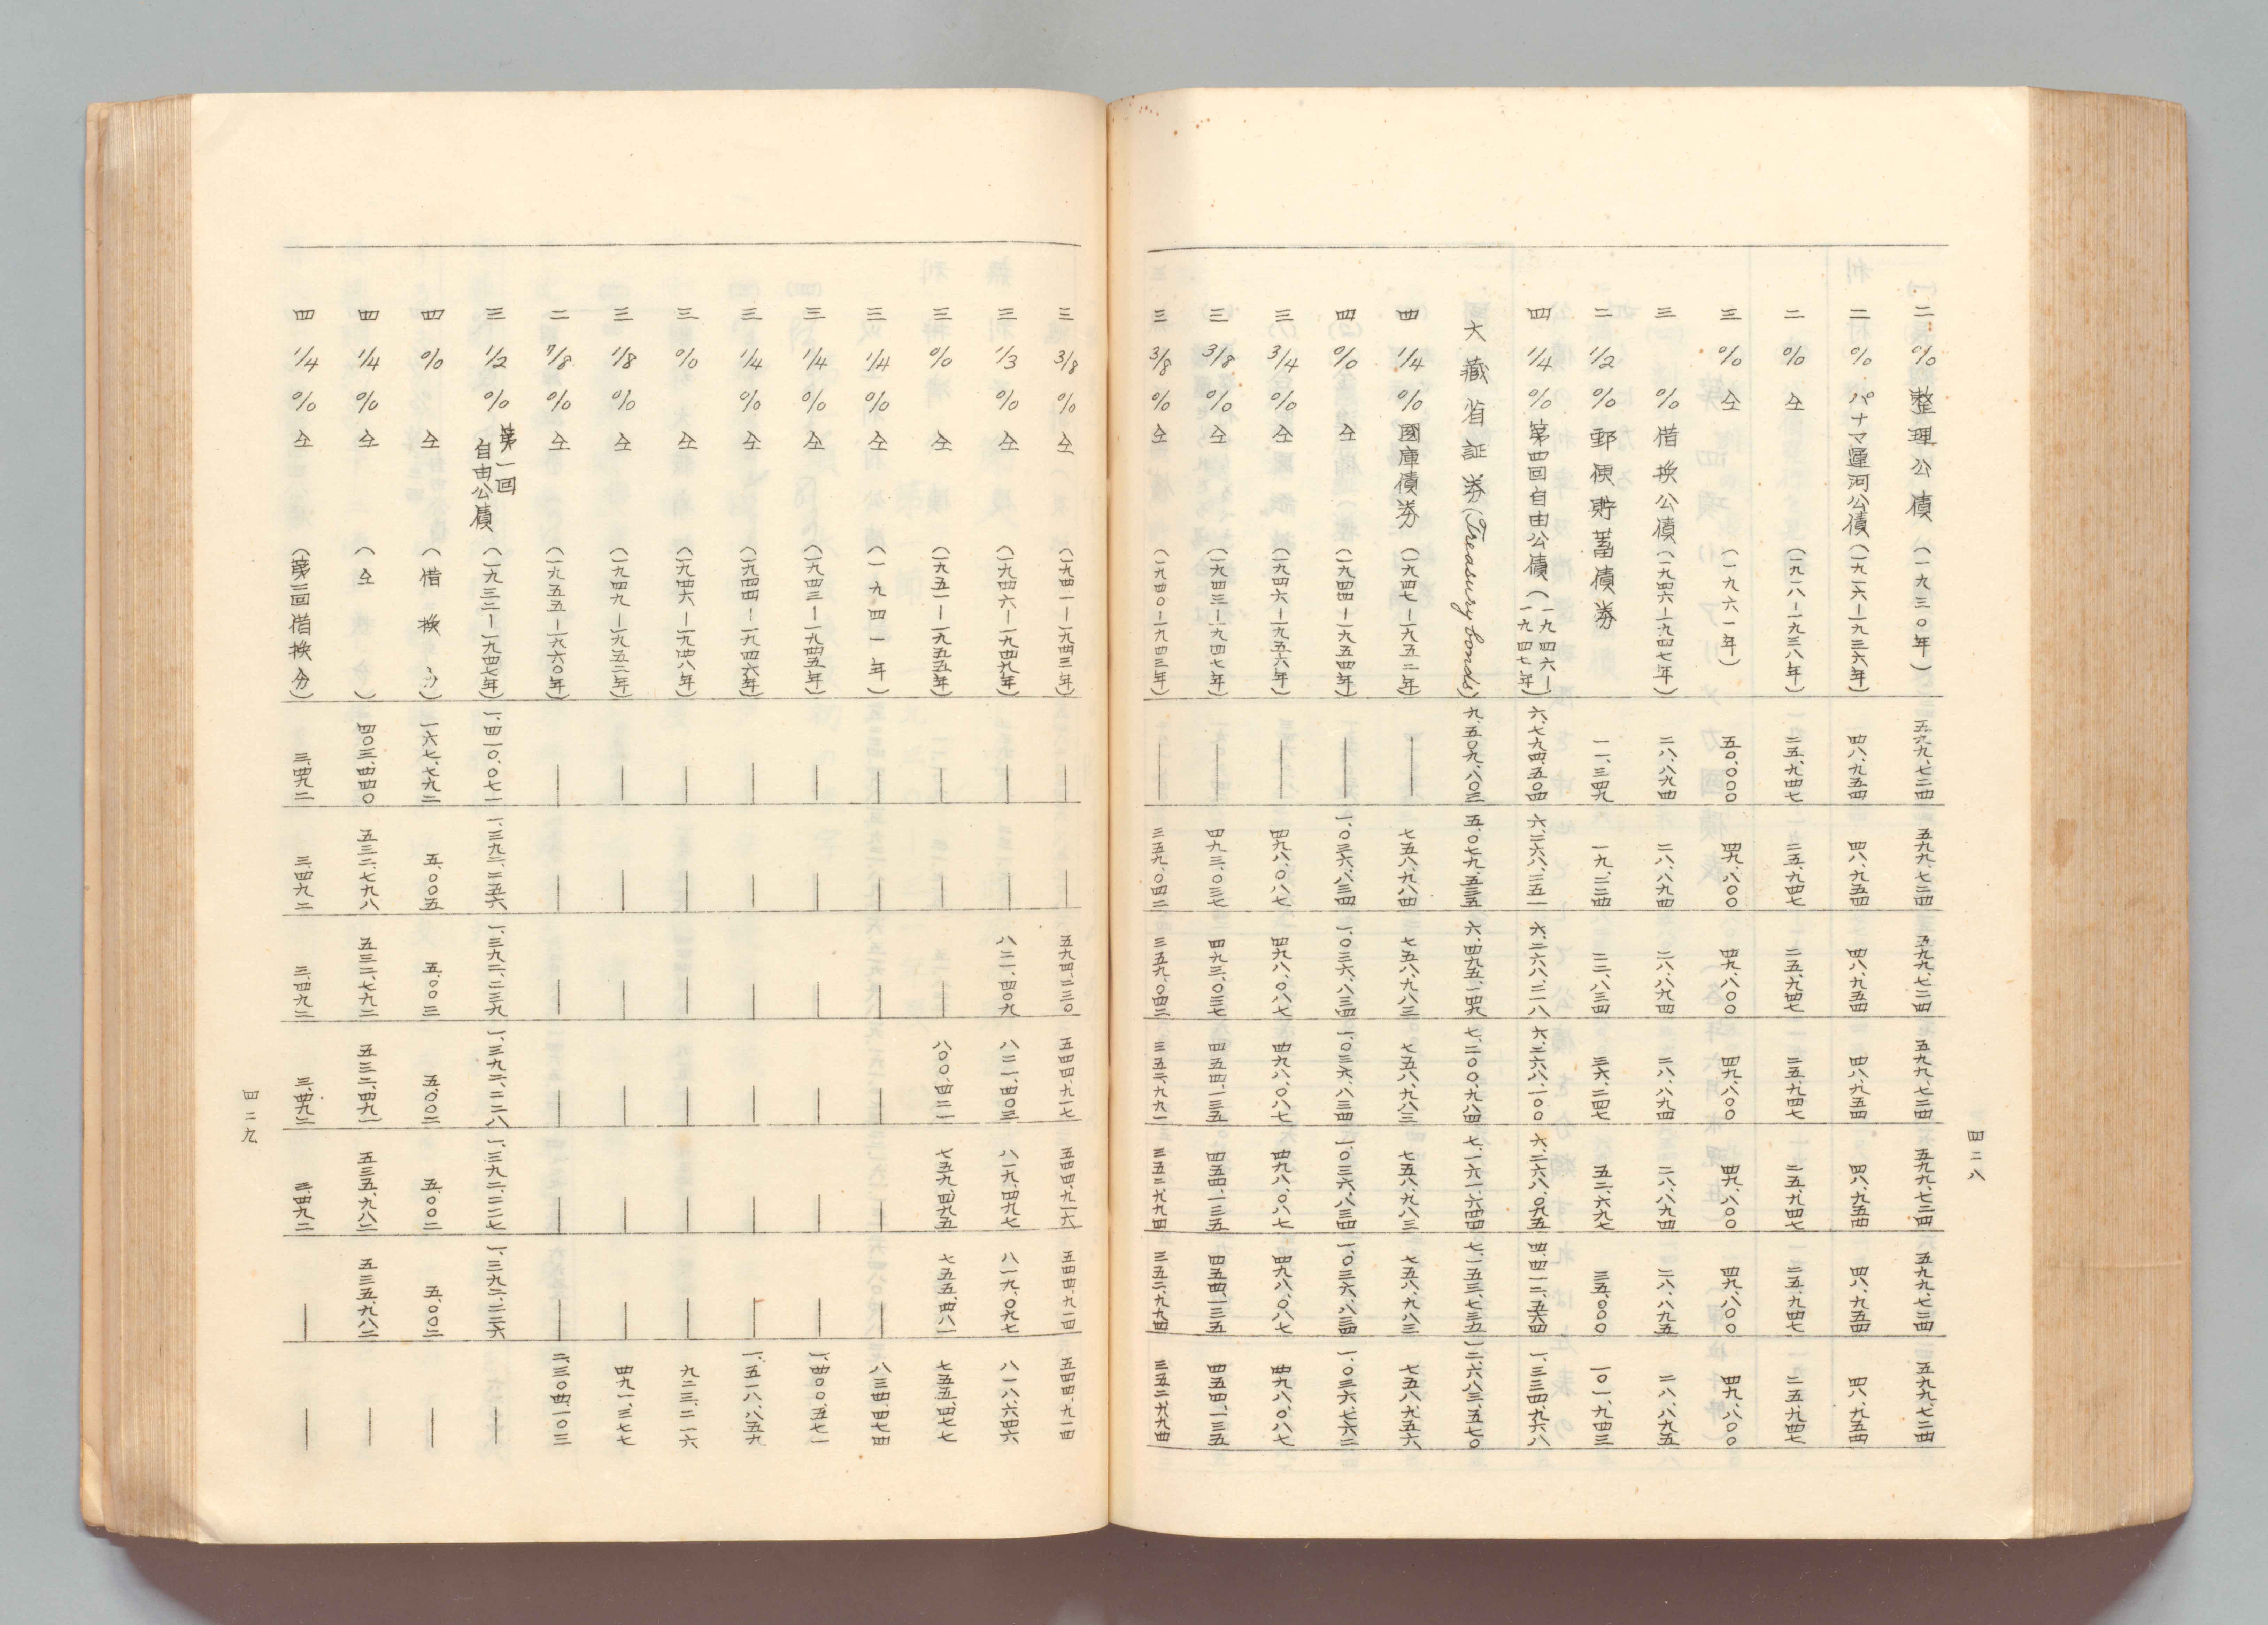 二%整理公債(一九三〇年) 五九九、七二四 五九九、七二四 五九九、七二四 五九九、七二四 五九九、七二四 五九九、七二四 五九九、七二四
二%パナマ運河公債(一九一六—一九三六年) 四八、九五四 四八、九五四 四八、九五四 四八、九五四 四八、九五四 四八、九五四 四八、九五四
二%仝(一九一八—一九三八年) 二五、九四七 二五、九四七 二五、九四七 二五、九四七 二五、九四七 二五、九四七 二五、九四七
三%仝(一九六一年) 五〇、〇〇〇 四九、八〇〇 四九、八〇〇 四九、八〇〇 四九、八〇〇 四九、八〇〇 四九、八〇〇
三%借換公債(一九四六—一九四七年) 二八、八九四 二八、八九四 二八、八九四 二八、八九四 二八、八九四 二八、八九五 二八、八九五
二1/2%郵便貯蓄債券 一一、三四九 一九、二二四 二二、八三四 三六、二四七 五二、六九七 三五、〇〇〇 一〇一、九四三
四1/4%第四回自由公債(一九四六—一九四七年) 六、七九四、五〇四 六、二六八、二五一 六、二六八、二一八 六、二六八、一〇〇 六、二六八、〇九五 四、四一二、五六四 一、三三四、九六八
大藏省証券(Treasury bonds) 九、五〇九、八〇三 五、〇七九、五三五 六、四九五、一四九 七、二〇〇、九八四 七、一六一、六四四 七、一五三、七三五 一二、六八三、五七〇
四1/4%國庫債券(一九四七—一九五二年) — 七五八、九八四 七五八、九八三 七五八、九八三 七五八、九八三 七五八、九八三 七五八、九五六
四%仝(一九四四—一九五四年) — 一、〇三六、八三四 一、〇三六、八三四 一、〇三六、八三四 一、〇三六、八三四 一、〇三六、八三四 一、〇三六、七六二
三3/4%仝(一九四六—一九五六年) — 四九八、〇八七 四九八、〇八七 四九八、〇八七 四九八、〇八七 四九八、〇八七 四九八、〇八七
三3/8%仝(一九四三—一九四七年) — 四九三、〇三七 四九三、〇三七 四五四、一三五 四五四、一三五 四五四、一三五 四五四、一三五
三3/8%仝(一九四〇—一九四三年) — 三五九、〇四二 三五九、〇四二 三五二、九九一 三五二、九九四 三五二、九九四 三五二、九九四
四二八
三3/8%仝(一九四一—一九四三年) — — 五九四、二三〇 五四四、九一七 五四四、九一六 五四四、九一四 五四四、九一四
三1/3%仝(一九四六—一九四九年) — — 八二一、四〇九 八二一、四〇三 八一九、四九七 八一九、〇九七 八一八、六四六
三%仝(一九五一—一九五五年) — — — 八〇〇、四二一 七五九、四九五 七五五、四八一 七五五、四七七
三1/4%仝(一九四一年) — — — — — — 八三四、四七四
三1/4%仝(一九四三—一九四五年) — — — — — — 一、四〇〇、五七一
三1/4%仝(一九四四—一九四六年) — — — — — — 一、五一八、八五九
三%仝(一九四六—一九四八年) — — — — — — 九二三、二一六
三1/8%仝(一九四九—一九五二年) — — — — — — 四九一、三七七
二7/8%仝(一九五五—一九六〇年) — — — — — — 二、三〇四、一〇三
三1/2%第一回自由公債(一九三二—一九四七年) 一、四一〇、〇七一 一、三九二、二五六 一、三九二、二三九 一、三九二、二二八 一、三九二、二二七 一、三九二、二二六 —
四%仝(借換分) 一六七、七九二 五、〇〇五 五、〇〇三 五、〇〇二 五、〇〇二 五、〇〇二 —
四1/4%仝(仝) 四〇三、四四〇 五三二、七九八 五三二、七九二 五三二、四九一 五三五、九八二 五三五、九八二 —
四1/4%仝(第二回借換分) 三、四九二 三、四九二 三、四九二 三、四九二 三、四九二 — —
四二九